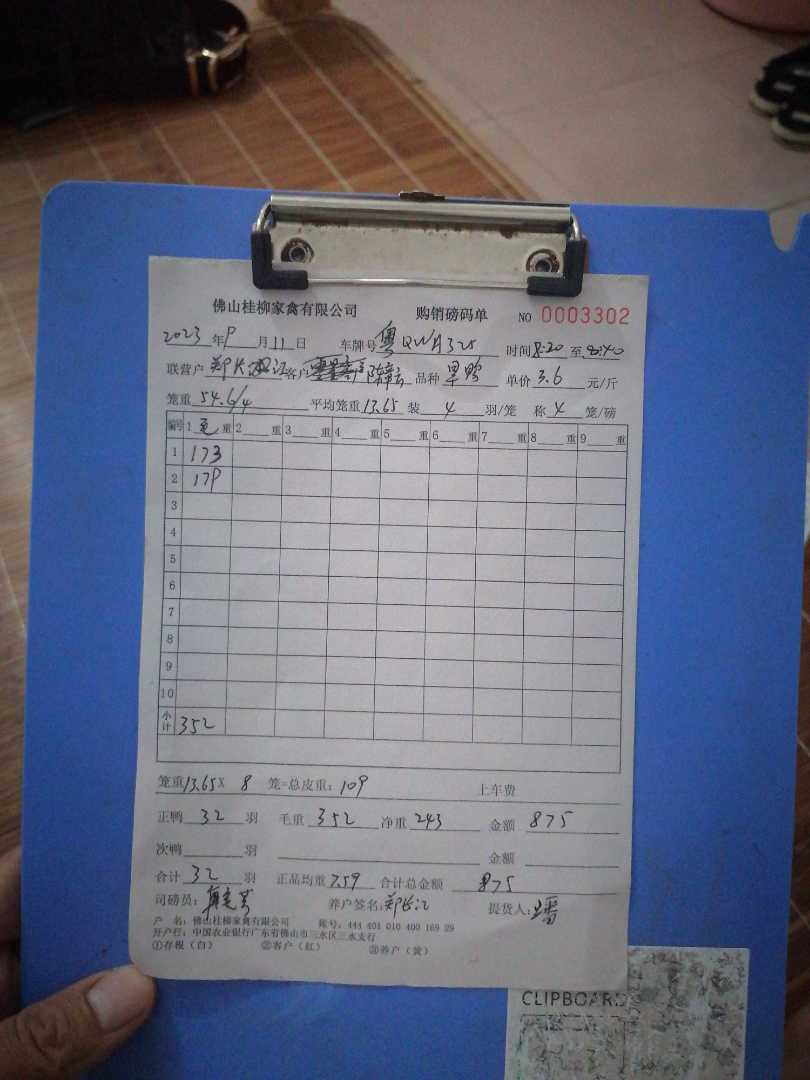 佛山桂柳家禽有限公司 购销磅码单 NO 0003302
2023年9月11日 车牌号粤QWA325 时间8:20至8:40
联营户郑长江客户陈 品种 单价3.6元/斤
笼重54.6/4 平均笼重13.65装4羽/笼 称4笼/磅
编号 1毛重 2重 3重 4重 5重 6重 7重 8重 9重
1 173
2 179
3
4
5
6
7
8
9
10
小计 352
笼重13.65X 8 笼=总皮重:109 上车费
正鸭32羽 毛重352净重243 金额875
次鸭羽 金额
合计32羽 正品均重7.59 合计总金额875
司磅员: 养户签名:郑长江 提货人:
户 名:佛山桂柳家禽有限公司 账号:444 401 010 400 169 29
开户行:中国农业银行广东省佛山市三水区三水支行
①存根(白) ②客户(红) ③养户(黄)
CLIPBOARD